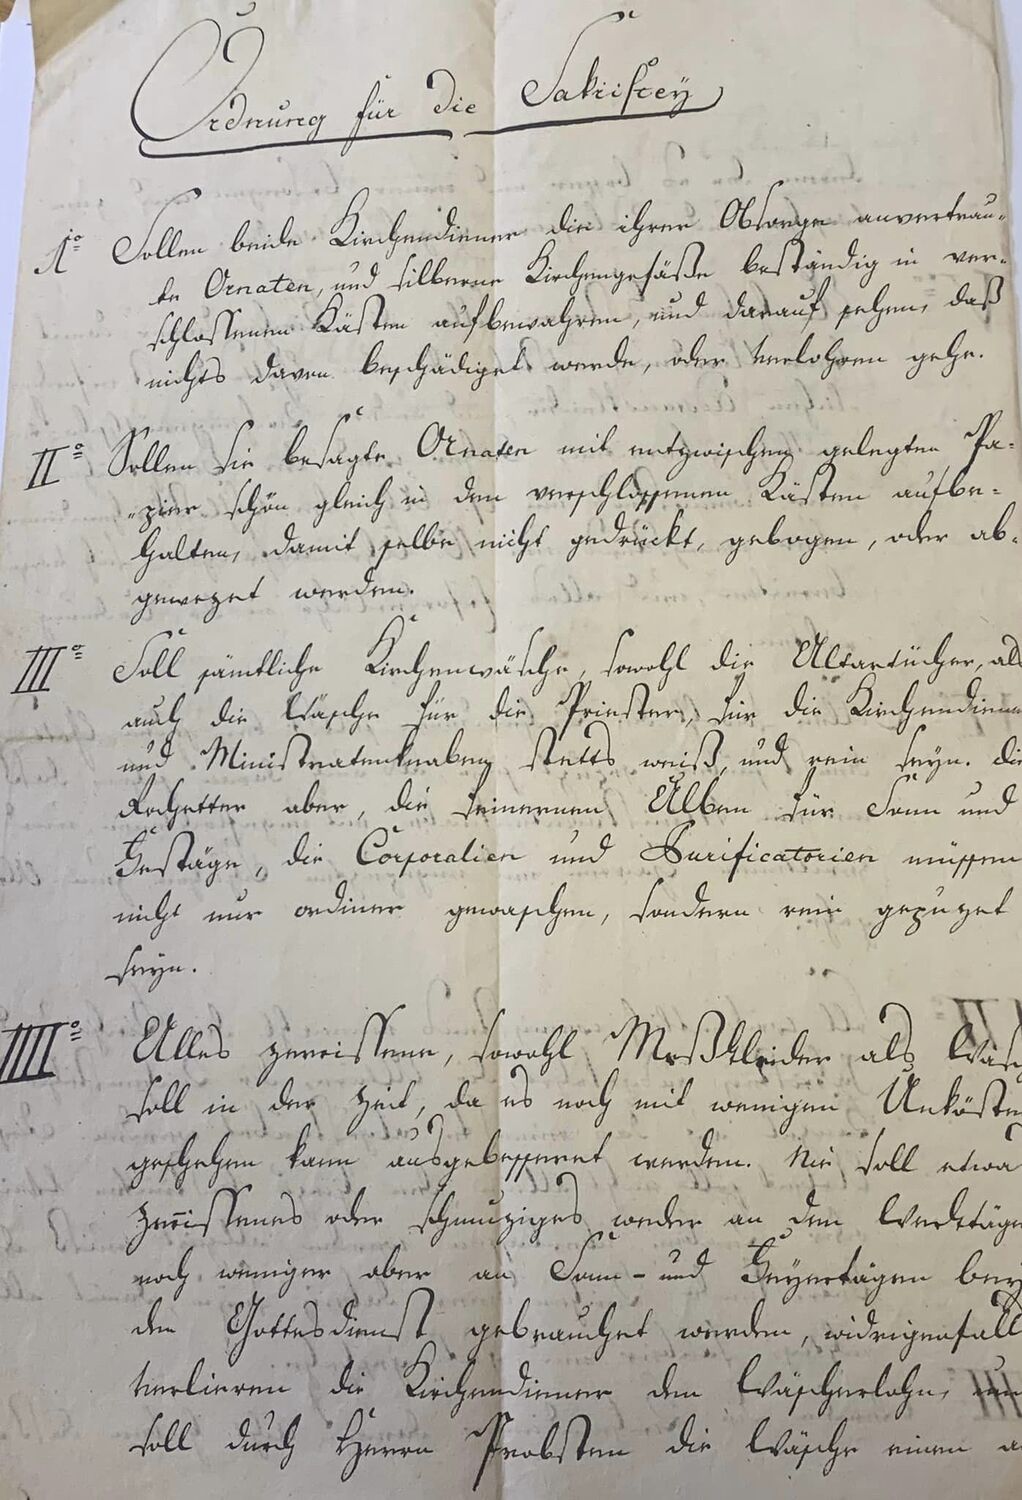 Ordnung für die Sakristey
1o Sollen beide Kirchendiener die ihrer Obsorge anvertrau-
te Ornaten, und silberne Kirchengefäße beständig in ver-
schlossenen Kästen aufbewahren, und darauf sehen, daß
nichts davon beschädiget werde, oder verlohren gehe.
IIo Sollen sie besagte Ornaten mit entzwischen gelegten Pa-
pier schön gleich in den verschlossenen Kästen aufbe-
halten, damit selbe nicht gedrückt, gebogen, oder ab-
gewezet werden.
IIIo Soll sämtliche Kirchenwäsche, sowohl die Altartücher, als
auch die Wäsche für die Priester, für die Kirchendiener
und Ministratenknaben stetts weiß, und rein seyn. die
Rochetter aber, die leinernen Alben für Sonn und
Festäge, die Corporalien und Purificatorien müssen
nicht nur ordiner gewaschen, sondern rein gepuzet
seyn.
IIIIo Alles zerrissene, sowohl Meßkleider als Wäsch
soll in der Zeit, da es noch mit wenigen Unkösten
geschehen kann ausgebesseret werden. Nie soll etwa
zerrissenes oder schmuziges weder an den Werktäge
noch weniger aber an Sonn- und Feyertägen bey
dem Gottesdienst gebrauchet werden, widrigenfall
verlieren die Kirchendiener den Wäscherlohn, un
soll durch Herrn Probsten die Wäsche einen a